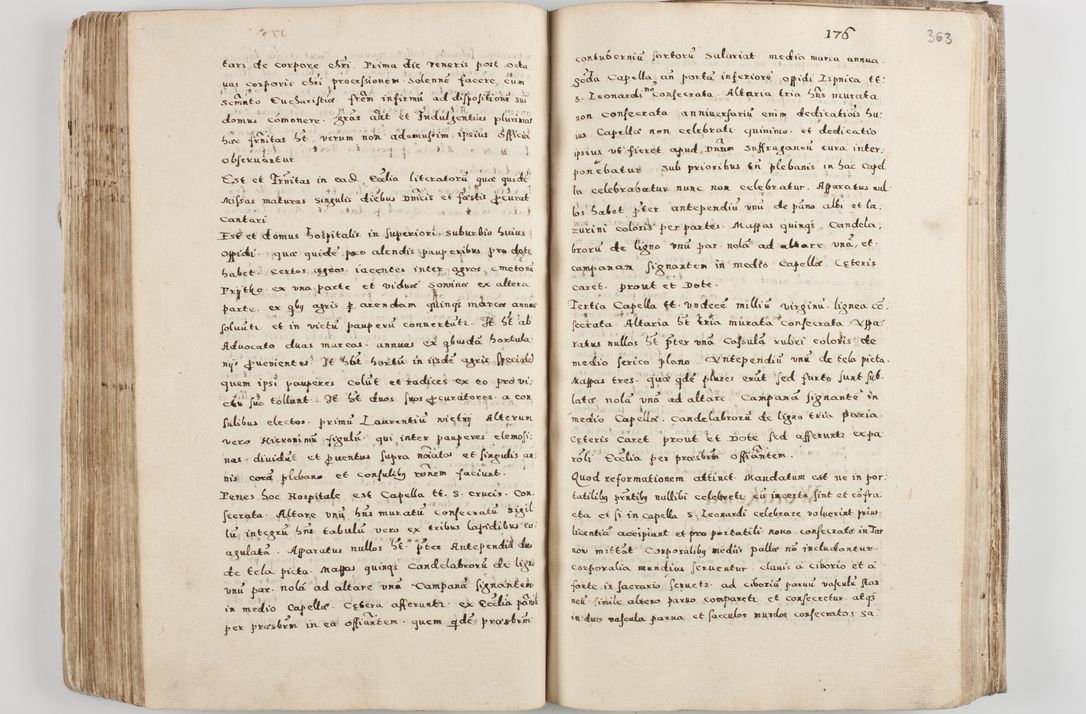 tari de corpore chri. Prima die veneris post octa
vas corporis chri processionem solenne facere, cum
Eucharistia frem infirmu ad dispositione sui
domus comonere. gras aut et Indulgentias plurimas
hac frnitas ht verum non adamussim ipsius officia
observantur
Est et Frnitas in ead. Ecclia literatoru quae quide
Missas maturas singulis diebus dnicis et foestis pcurat
Cantari
Est et domus hospitalis in superiori suburbio huius
oppidi quae quide pro alendis pauperibus pro dote
habet certos agros iacentes inter agros, cmetonu
Prytko ex una parte et viduae Sowina ex altera
parte. ex qbus agris p arendam qlinqs marcae annue
solvutr et in victu pauperu convertutr. It ht ab
Advocato duas marcas annuas ex qbusda hortula
nijs pvenientes It hbt hortu in iisde agris
quem ipsi pauperes colut et radices ex eo pro vi
ctu suo tollunt. It ht duos suos pcuratores a con
sulibus electos. primu Laurentiu wietrij Alterum
vero Hieronimu figulu qui inter pauperes elemosi:
nas dividut et pventus supra noiatos et singulis an
nis cora plebano et consulibus ronem faciunt.
Penes hoc Hospitale est Capella tt. S. crucis. Con
secrata. Altare unu hns muratu consecratu sigil
lu integru hns tabulu vero ex tribus lapidibus co:
agulata. Apparatus nullos ht pter Antependia duo
de tela picta. Mappas quinqs candelabroru de ligno
unu par. nola ad altare una. Campana signantem
in medio capellae. Cetera afferuntr ex Ecclia paroli
per praesbrm in ea offiantem. quem qde praesbrm

176 363
contuberniu sartoru salariat media marca annua.
Capella an porta inferiore oppidi Ilpnica tt:
S. Leonardi no consecrata. Altaria tria hns murata
non consecrata anniversariu enim dedicatiois hu
ius Capellae non celebratr quinimo et dedicatio
ipsius ut fieret apud Dnum suffraganeu cura inter:
ponebatur sub prioribus tn plebanis in hac Capel
la celebrabatur nunc non celebratur. Apparatus nul
los habet pter antependiu unu de pano albi et la:
zurini coloris per partes. Mappas quinqs. Candela:
broru de ligno unu par nola ad altare una. et
campanam signantem in medio Capellae. Ceteris
caret. prout et Dote.
Tertia Capella tt. undece milliu virginu. lignea co
secrata. Altaria ht tria murata consecrata Appa
ratus nullos ht pter una Casula rubei coloris de
medio serico plano. Antependiu unu de tela picta.
Mappas tres. quae qde plures erat sed furto sunt sub
latae nola una ad altare. Campana signante in
medio Capellae. candelabroru de ligno tria paria.
Ceteris Caret prout et Dote sed afferuntr ex pa:
roli Ecclia per praesbrm offiantem.
Quod reformationem attinet Mandatum est ne in por
tatilibus nullibi celebretr cu incerta sint et cofra
cta et si in capella S. Leonardi celebrare voluerint prius
licentia accipiant et pro portatili novo consecrato in Tar
now mittat Corporalibus mediis pallae no includantur
corporalia mundius serventur. clavis a ciborio et a
fonte in sacrario servetr. ad ciboriu parvu vasculu stan
neu simile altero parvo comparetr et consecretur atqs
in duo vascula parva et sacculos mundos consecratos sa